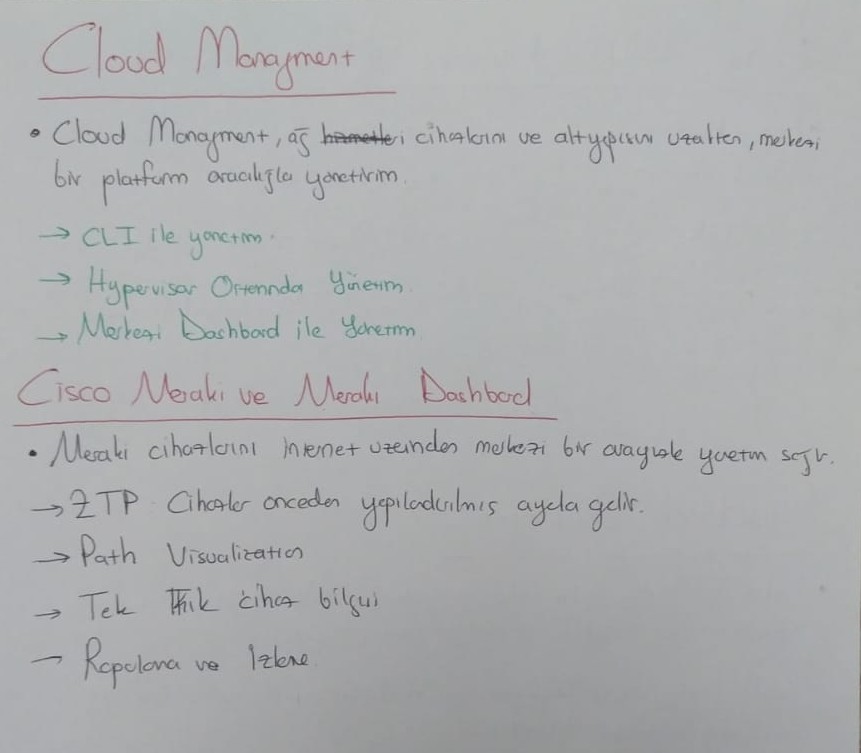 Cloud Managment
• Cloud Managment, ağ hizmetleri cihazlarını ve altyapısını uzaktan, merkezi
bir platform aracılığla yönetirim.
→ CLI ile yönetim.
→ Hypervisor Ortamında Yönetim
→ Merkezi Dashboard ile Yönetim
Cisco Meraki ve Meraki Dashbord
• Meraki cihazlarını internet üzerinden merkezi bir arayüzle yönetim sağlr.
→ ZTP Cihazlar önceden yapıladırılmış ayarla gelir.
→ Path Visualization
→ Tek tık cihaz bilgisi
→ Raporlama ve İzleme